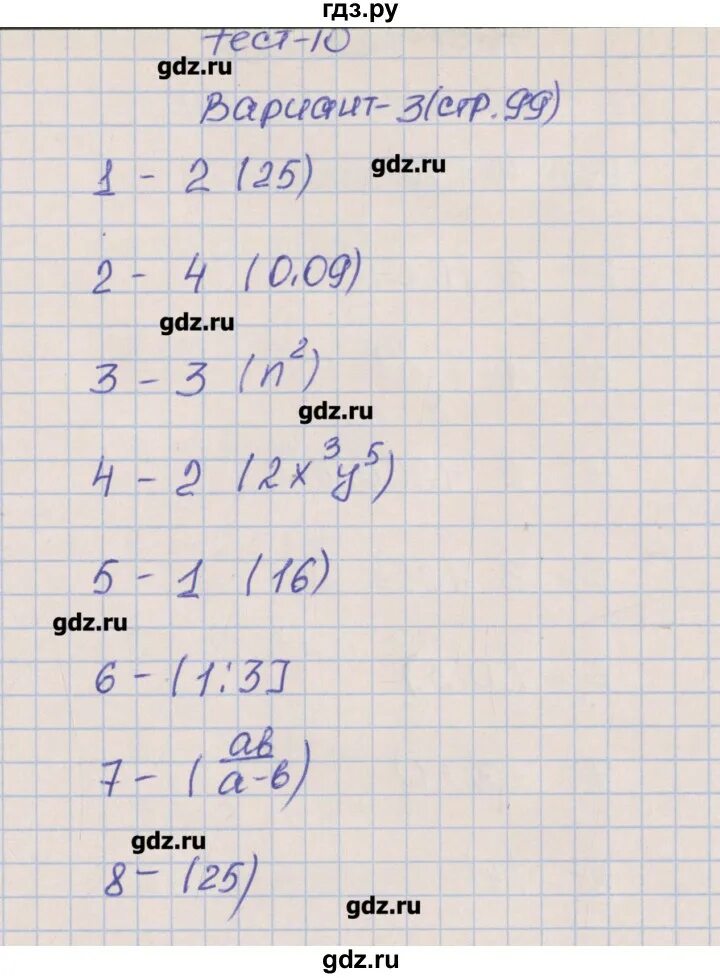 гдз.ру
Тест-10
gdz.ru
Вариант-3(стр.99)
gdz.ru
1 - 2 (25)
2 - 4 (0.09)
gdz.ru
3 - 3 (n²)
gdz.ru
4 - 2 (2x³y⁵)
5 - 1 (16)
gdz.ru
6 - (1;3]
7 - (ab/a-b)
gdz.ru
8 - (25)
gdz.ru
гдз.ру